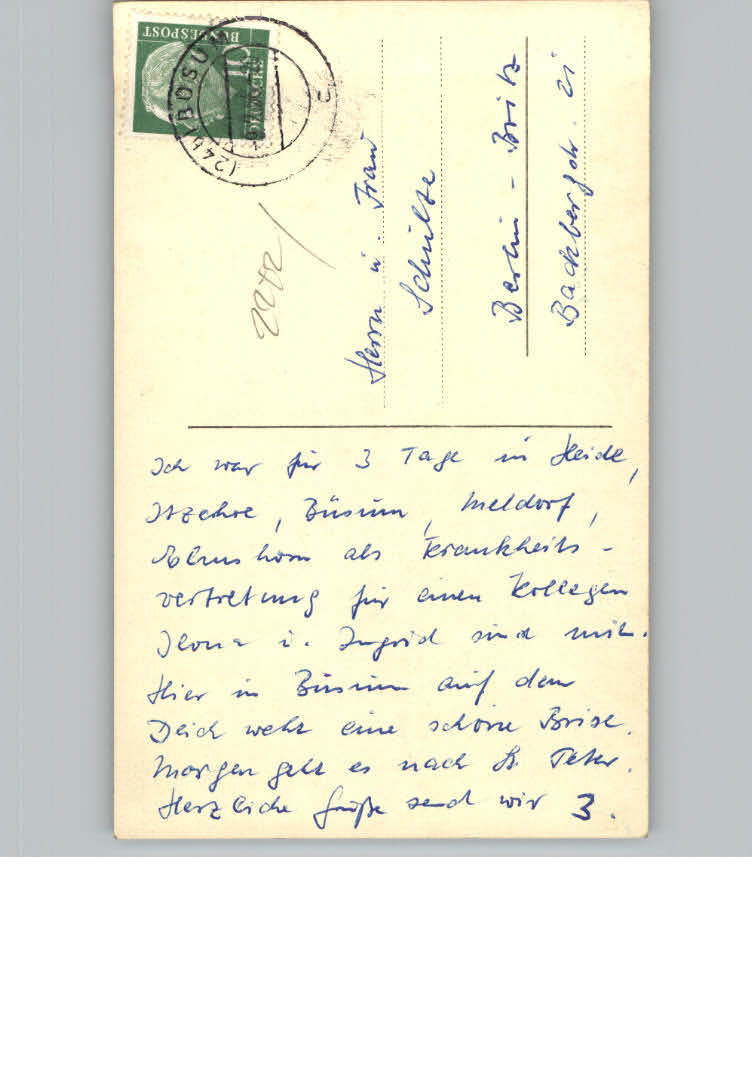 Ich war für 3 Tage in Heide,
Itzehoe, Büsum, Meldorf,
Elmshorn als Krankheits-
vertretung für einen Kollegen
Ilona u. Ingrid sind mit.
Hier in Büsum auf dem
Deich weht eine schöne Brise.
Morgen geht es nach St. Peter.
Herzliche Grüße send wir 3.
Herrn u. Frau
Schulze
Berlin - Britz
Backbergstr. 21
DEUTSCHE
BUNDESPOST
10
(24b) BÜSUM
c